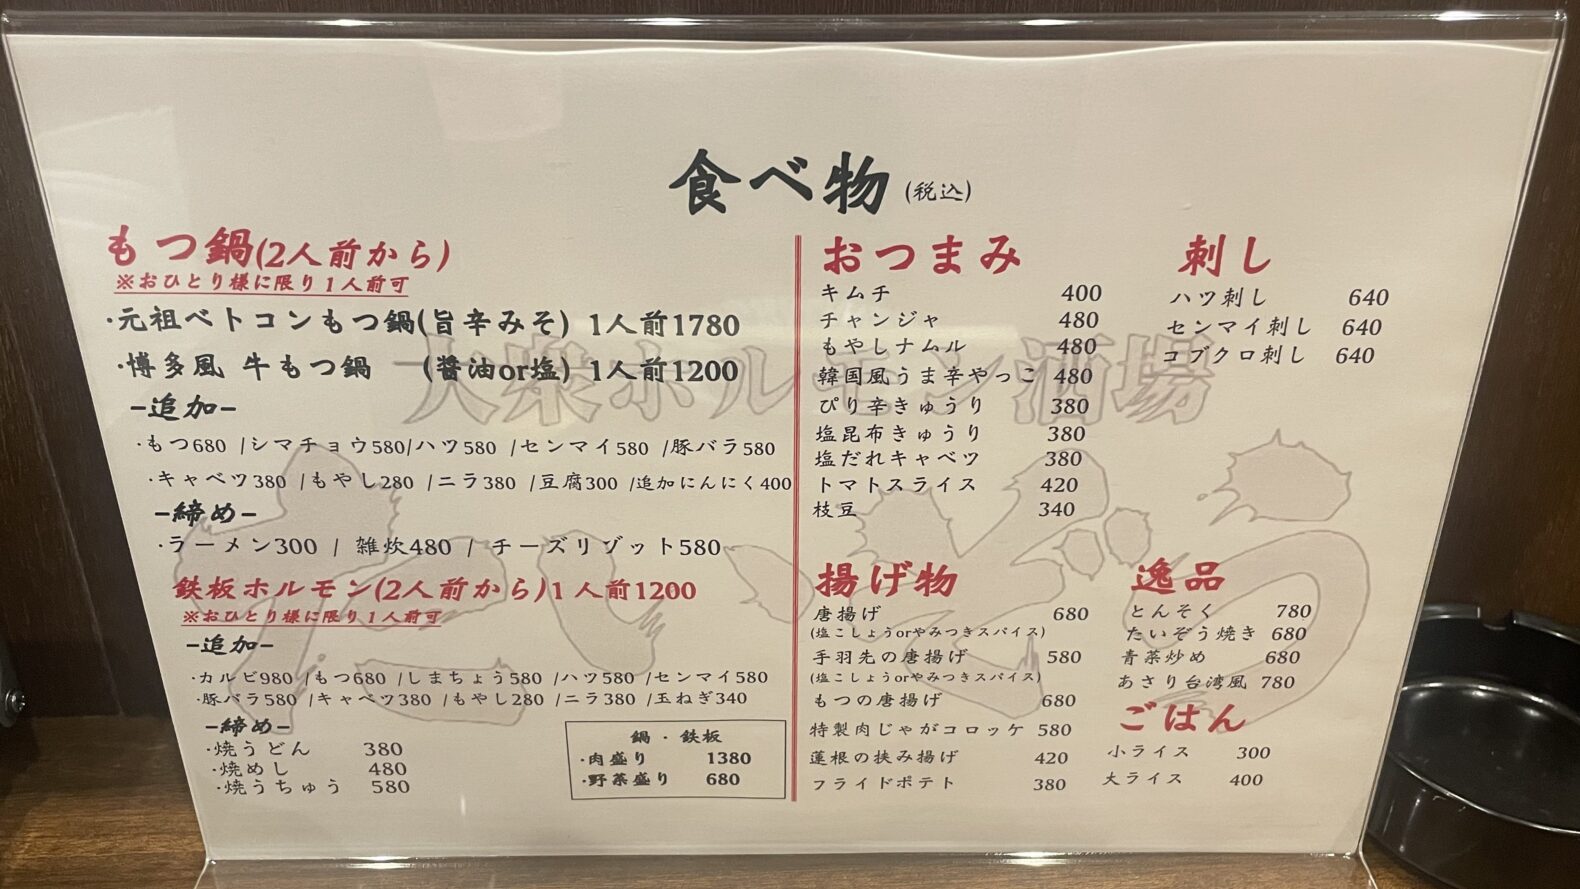 食べ物 (税込)
もつ鍋(2人前から)
※おひとり様に限り1人前可
・元祖ベトコンもつ鍋(旨辛みそ) 1人前1780
・博多風 牛もつ鍋 (醤油or塩) 1人前1200
-追加-
・もつ680 /シマチョウ580/ハツ580 /センマイ580 /豚バラ580
・キャベツ380 /もやし280 /ニラ380 /豆腐300 /追加にんにく400
-締め-
・ラーメン300 / 雑炊480 / チーズリゾット580
鉄板ホルモン(2人前から)1人前1200
※おひとり様に限り1人前可
-追加-
・カルビ980 /もつ680 /しまちょう580 /ハツ580 /センマイ580
・豚バラ580 /キャベツ380 /もやし280 /ニラ380 /玉ねぎ340
-締め-
・焼うどん 380
・焼めし 480
・焼うちゅう 580
鍋・鉄板
・肉盛り 1380
・野菜盛り 680
おつまみ
キムチ 400
チャンジャ 480
もやしナムル 480
韓国風うま辛やっこ 480
ぴり辛きゅうり 380
塩昆布きゅうり 380
塩だれキャベツ 380
トマトスライス 420
枝豆 340
刺し
ハツ刺し 640
センマイ刺し 640
コブクロ刺し 640
揚げ物
唐揚げ 680
(塩こしょうorやみつきスパイス)
手羽先の唐揚げ 580
(塩こしょうorやみつきスパイス)
もつの唐揚げ 680
特製肉じゃがコロッケ 580
蓮根の挟み揚げ 420
フライドポテト 380
逸品
とんそく 780
たいぞう焼き 680
青菜炒め 680
あさり台湾風 780
ごはん
小ライス 300
大ライス 400
大衆ホルモン酒場
たいぞう